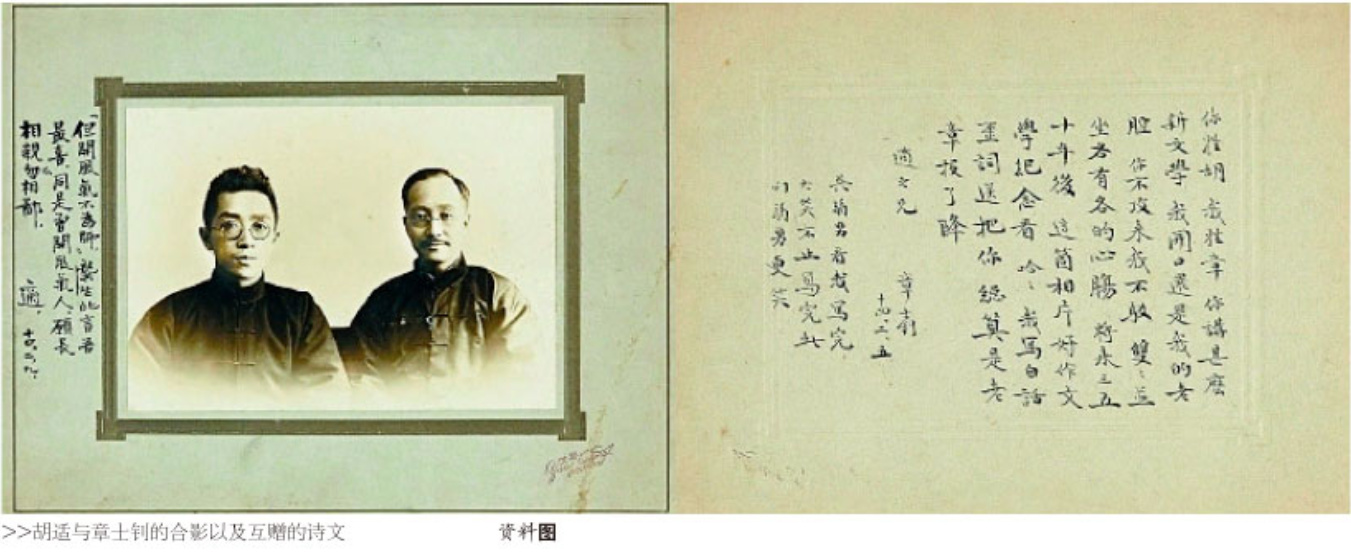 「但開風氣不為師」,龔生此言吾
最喜。同是曾開風氣人,願長
相親勿相鄙。
適。
你姓胡 我姓章 你講甚麼
新文學 我開口還是我的老
腔 你不攻來我不駁 雙々並
坐各有各的心腸 將來三五
十年後 這箇相片好作文
學紀念看 哈々我寫白話
歪詞送把你 總算是老
章投了降
適之兄 章士釗
吳弱男看我寫完
大笑不止寫完此
行弱男更笑
>>胡适与章士钊的合影以及互赠的诗文 资料图